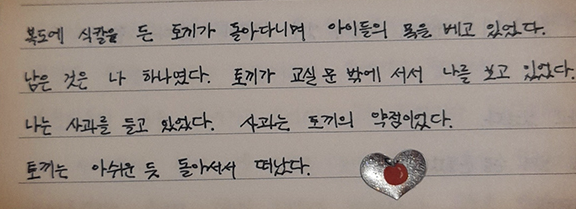 복도에 식칼을 든 토끼가 돌아다니며 아이들의 목을 베고 있었다.
남은 것은 나 하나였다. 토끼가 교실 문 밖에 서서 나를 보고 있었다.
나는 사과를 들고 있었다. 사과는 토끼의 약점이었다.
토끼는 아쉬운 듯 돌아서서 떠났다.